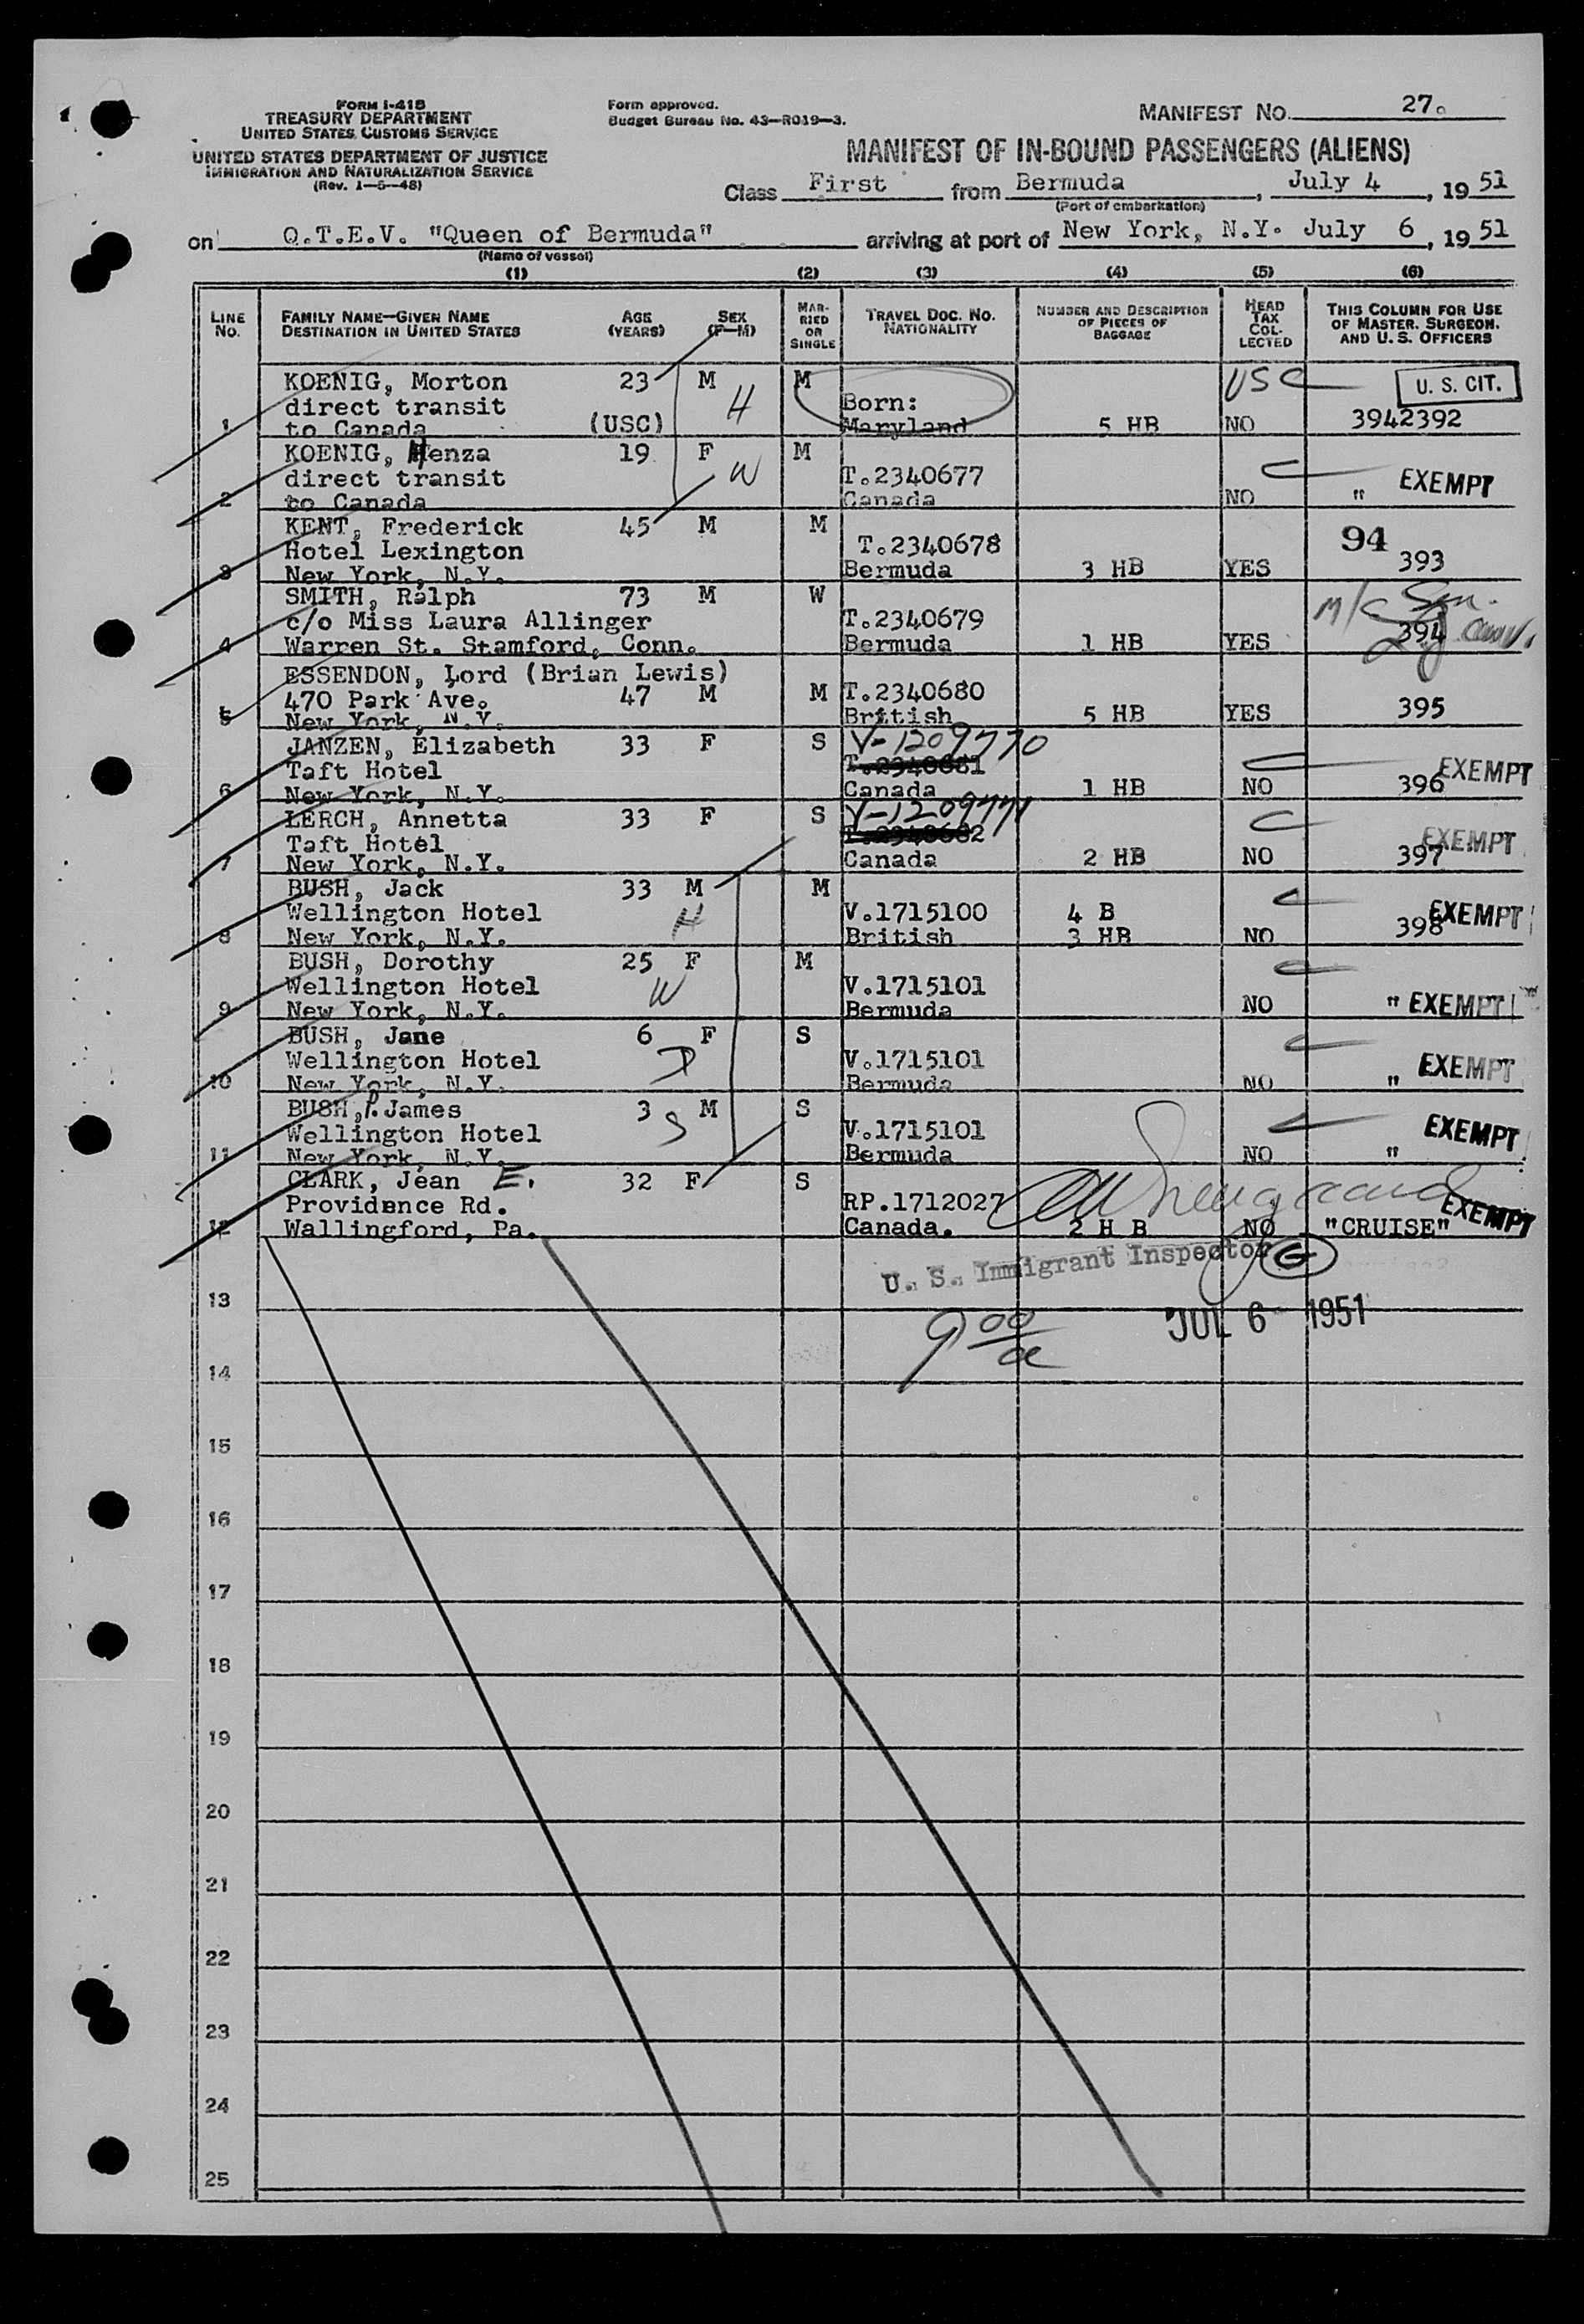 FORM I-418
TREASURY DEPARTMENT
UNITED STATES CUSTOMS SERVICE
UNITED STATES DEPARTMENT OF JUSTICE
IMMIGRATION AND NATURALIZATION SERVICE
(Rev. 1-5-48)
Form approved.
Budget Bureau No. 43-R019-3.
MANIFEST NO. 27.
MANIFEST OF IN-BOUND PASSENGERS (ALIENS)
Class First from Bermuda, July 4, 19 51
(Port of embarkation)
on Q.T.E.V. "Queen of Bermuda" arriving at port of New York, N.Y. July 6, 19 51
(Name of vessel)
(1) (2) (3) (4) (5) (6)
LINE No. FAMILY NAME—GIVEN NAME DESTINATION IN UNITED STATES AGE (YEARS) SEX (F—M) MARRIED OR SINGLE TRAVEL DOC. NO. NATIONALITY NUMBER AND DESCRIPTION OF PIECES OF BAGGAGE HEAD TAX COLLECTED THIS COLUMN FOR USE OF MASTER, SURGEON, AND U. S. OFFICERS
KOENIG, Morton 23 M M USC U. S. CIT.
direct transit H Born:
1 to Canada (USC) Maryland 5 HB NO 3942392
KOENIG, Henza 19 F M
direct transit W T.2340677 EXEMPT
2 to Canada Canada NO "
KENT, Frederick 45 M M 94
Hotel Lexington T.2340678
3 New York, N.Y. Bermuda 3 HB YES 393
SMITH, Ralph 73 M W
c/o Miss Laura Allinger T.2340679
4 Warren St. Stamford, Conn. Bermuda 1 HB YES 394
ESSENDON, Lord (Brian Lewis)
470 Park Ave. 47 M M T.2340680
5 New York, N.Y. British 5 HB YES 395
JANZEN, Elizabeth 33 F S V-1209770
Taft Hotel T.2340681 EXEMPT
6 New York, N.Y. Canada 1 HB NO 396
LERCH, Annetta 33 F S V-1209771
Taft Hotel T.2340682 EXEMPT
7 New York, N.Y. Canada 2 HB NO 397
BUSH, Jack 33 M M
Wellington Hotel H V.1715100 4 B EXEMPT
8 New York, N.Y. British 3 HB NO 398
BUSH, Dorothy 25 F M
Wellington Hotel W V.1715101
9 New York, N.Y. Bermuda NO " EXEMPT
BUSH, Jane 6 F S
Wellington Hotel D V.1715101 EXEMPT
10 New York, N.Y. Bermuda NO "
BUSH, P. James 3 M S
Wellington Hotel S V.1715101 EXEMPT
11 New York, N.Y. Bermuda NO "
CLARK, Jean E. 32 F S
Providence Rd. RP.1712027 EXEMPT
12 Wallingford, Pa. Canada. 2 H B NO "CRUISE"
U. S. Immigrant Inspector G
13
JUL 6 1951
9 00/a
14
15
16
17
18
19
20
21
22
23
24
25